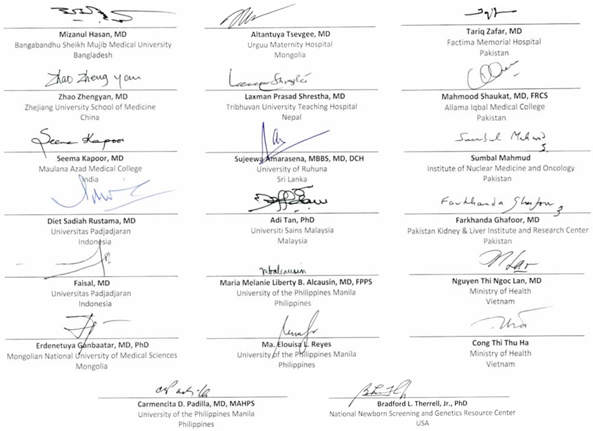 Mizanul Hasan, MD
Bangabandhu Sheikh Mujib Medical University
Bangladesh
Altantuya Tsevgee, MD
Urguu Maternity Hospital
Mongolia
Tariq Zafar, MD
Factima Memorial Hospital
Pakistan
Zhao Zheng yan
Zhao Zhengyan, MD
Zhejiang University School of Medicine
China
Laxman Prasad Shrestha, MD
Tribhuvan University Teaching Hospital
Nepal
Mahmood Shaukat, MD, FRCS
Allama Iqbal Medical College
Pakistan
Seema Kapoor
Seema Kapoor, MD
Maulana Azad Medical College
India
Sujeewa Amarasena, MBBS, MD, DCH
University of Ruhuna
Sri Lanka
Sumbal Mahmud
Sumbal Mahmud
Institute of Nuclear Medicine and Oncology
Pakistan
Diet Sadiah Rustama, MD
Universitas Padjadjaran
Indonesia
Adi Tan, PhD
Universiti Sains Malaysia
Malaysia
Farkhanda Ghafoor
Farkhanda Ghafoor, MD
Pakistan Kidney & Liver Institute and Research Center
Pakistan
Faisal, MD
Universitas Padjadjaran
Indonesia
Maria Melanie Liberty B. Alcausin, MD, FPPS
University of the Philippines Manila
Philippines
Nguyen Thi Ngoc Lan, MD
Ministry of Health
Vietnam
Erdenetuya Ganbaatar, MD, PhD
Mongolian National University of Medical Sciences
Mongolia
Ma. Elouisa L. Reyes
University of the Philippines Manila
Philippines
Cong Thi Thu Ha
Ministry of Health
Vietnam
Carmencita D. Padilla, MD, MAHPS
University of the Philippines Manila
Philippines
Bradford L. Therrell, Jr., PhD
National Newborn Screening and Genetics Resource Center
USA